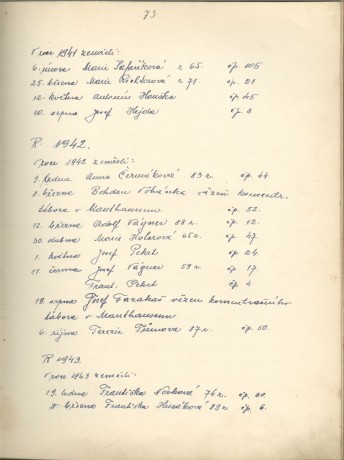 73.
V roce 1941 zemřeli:
6. února Marie Šafaříková z 65. čp. 105
25. března Marie Richterová z 71. čp. 21
12. května Antonín Houska čp. 45
20. srpna Josef Hejda čp. 3
R. 1942.
V roce 1942 zemřeli:
9. ledna Anna Čermáková 83 r. čp. 44.
8. března Bohdan vězeň koncentr.
tábora v Mauthausenu čp. 52.
12. března Adolf Vágner 88 r. čp. 12.
30. dubna Marie 65 r. čp. 47.
1. května Josef Pekrt čp. 24.
11. června Josef Vágner 59 r. čp. 17.
Frant. Pekrt čp. 4
19. srpna Josef vězen koncentračního
tábora v Mauthausenu
6. října Terezie 87 r. čp. 50.
R 1943.
V roce 1943 zemřeli:
19. ledna Františka Nosková 76 r. čp. 60.
března Františka Husáková 83 r. čp. 6.